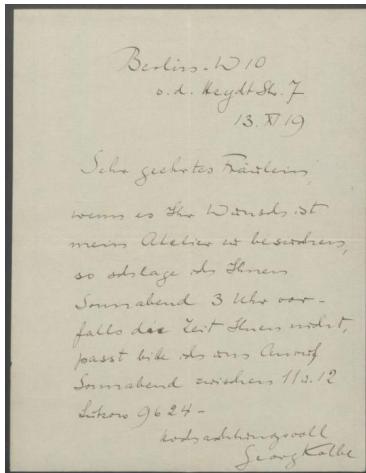 Berlin. W 10
v. d. Heydt Str. 7
13. XI 19
Sehr geehrtes Fräulein,
wenn es Ihr Wunsch ist
mein Atelier zu besuchen,
so schlage ich Ihnen
Sonnabend 3 Uhr vor –
falls die Zeit Ihnen nicht,
passt bitte ich um Anruf
Sonnabend zwischen 11 u. 12
Lützow 9624 –
hochachtungsvoll
Georg Kolbe